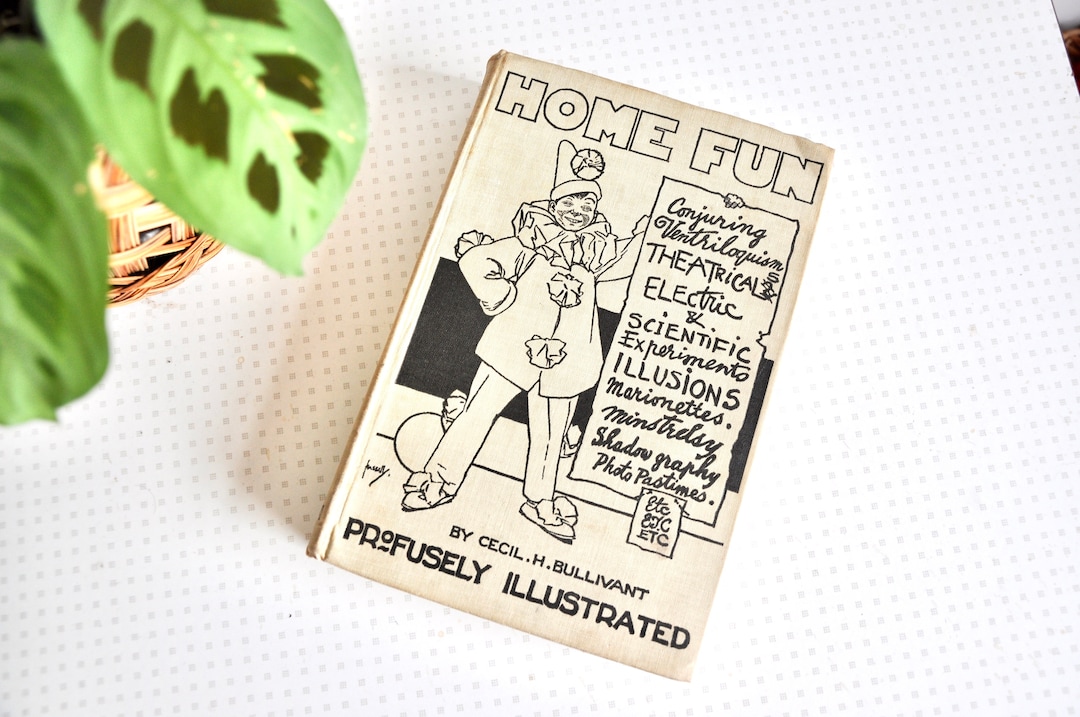 HOME FUN
Conjuring
Ventriloquism
THEATRICALS
ELEctric
&
SCIENTIFIC
Experiments
ILLUSIONS
Marionettes.
Minstrelsy
Shadowgraphy
Photo Pastimes.
Etc
ETC
ETC
BY CECIL.H.BULLIVANT
PRoFUSELY ILLUSTRATED